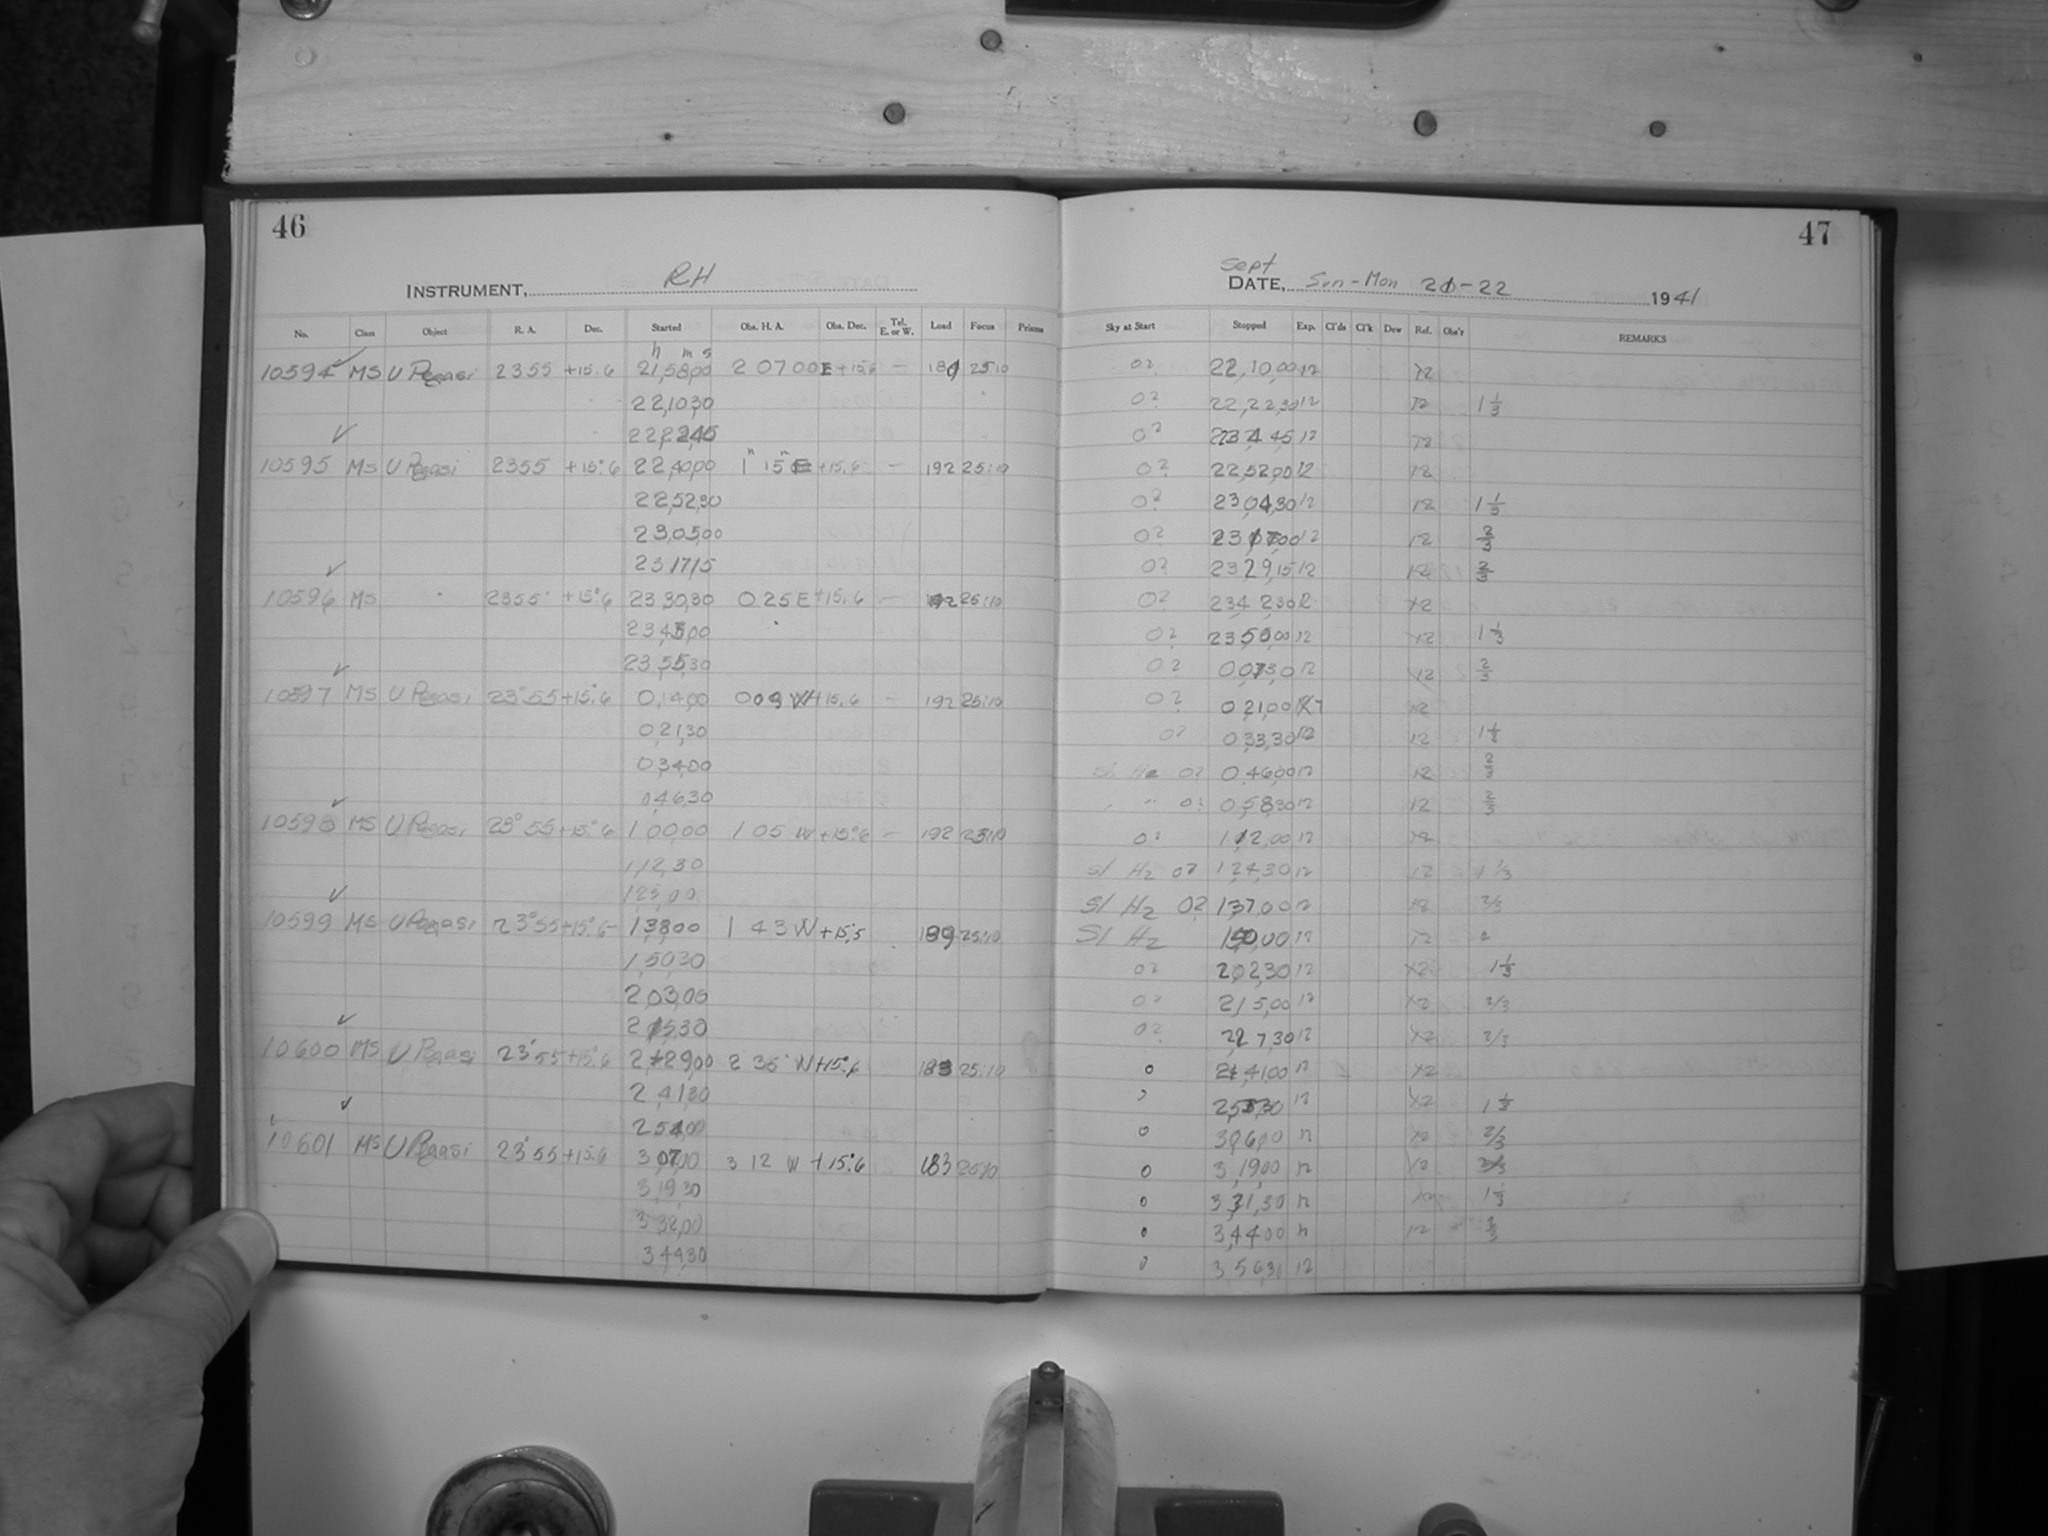 46
47
INSTRUMENT, RH
Sept
DATE, Sun - Mon 21-22 1941
No. Class Object R. A. Dec. Started Obs. H. A. Obs. Dec. Tel. E. or W. Load Focus Prisms Sky at Start Stopped Exp. Cl'ds Cl'k Dew Ref. Obs'r REMARKS
h m s
10594 MS U Pegasi 2355 +15.6 21,58,00 2 07 00 E +15.6 — 25:10 0? 22,10,00 12 12
22,10,30 0? 22,22,30 12 12 1 1/3
22,22,45 0? 12 12
10595 MS U Pegasi 2355 +15.6 22,40,00 1 15 E +15.6 — 192 25:10 0? 22,52,00 12 12
22,52,30 0? 23,04,30 12 12 1 1/3
23,05,00 0? 23,17,00 12 12 2/3
23,17,15 0? 23,29,15 12 12 2/3
10596 MS " 2355 +15.6 23,30,30 0 25 E +15.6 — 192 25:10 0? 23,42,30 12 12
23,43,00 0? 23,55,00 12 12 1 1/3
23,55,30 0? 0,07,30 12 12 2/3
10597 MS U Pegasi 23 55 +15.6 0,14,00 0 09 W +15.6 — 192 25:10 0? 0,21,00 7 12
0,21,30 0? 0,33,30 12 12 1 1/3
0,34,00 Sl Hz 0? 0,46,00 12 12 2/3
0,46,30 " " 0? 0,58,30 12 12 2/3
10598 MS U Pegasi 23 55 +15.6 1,00,00 1 05 W +15.6 — 192 25:10 0? 1,12,00 12 12
1,12,30 Sl Hz 0? 1,24,30 12 12 1 1/3
1,25,00 Sl Hz 0? 1,37,00 12 12 2/3
10599 MS U Pegasi 23 55 +15.6 1,38,00 1 43 W +15.5 189 25:10 Sl Hz 1,50,00 12 12
1,50,30 0? 2,02,30 12 12 1 1/3
2,03,00 0? 2,15,00 12 12 2/3
2,15,30 0? 2,27,30 12 12 2/3
10600 MS U Pegasi 23 55 +15.6 2,29,00 2 35 W +15.6 183 25:10 0 2,41,00 12 12
2,41,30 0 2,53,30 12 12 1 1/3
2,54,00 0 3,06,00 12 12 2/3
10601 MS U Pegasi 23 55 +15.6 3,07,00 3 12 W +15.6 183 25:10 0 3,19,00 12 12
3,19,30 0 3,31,30 12 12 1 1/3
3,32,00 0 3,44,00 12 12 2/3
3,44,30 0 3,56,30 12